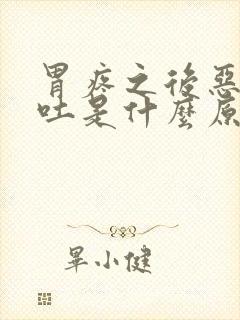 胃疼之後惡
吐是什麼原
畢小健